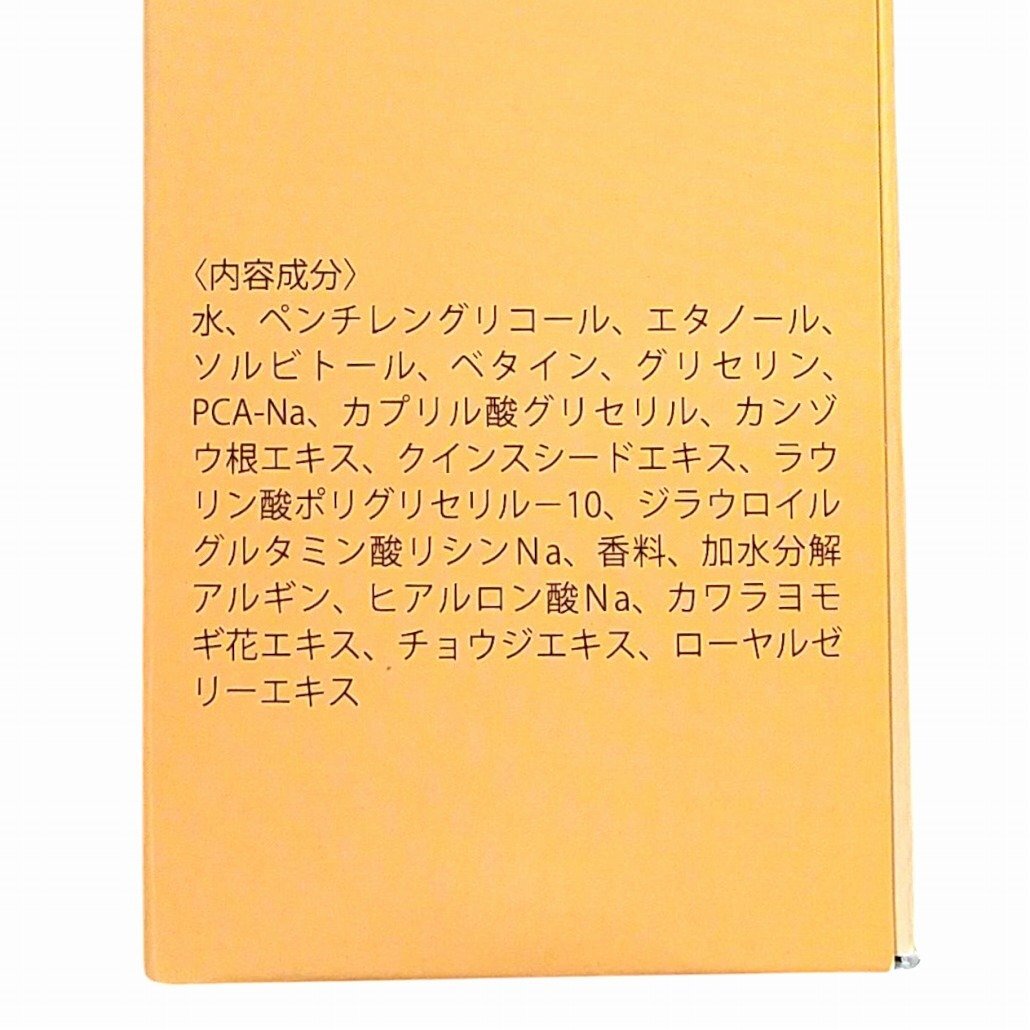 〈内容成分〉
水、ペンチレングリコール、エタノール、
ソルビトール、ベタイン、グリセリン、
PCA-Na、カプリル酸グリセリル、カンゾ
ウ根エキス、クインスシードエキス、ラウ
リン酸ポリグリセリル－10、ジラウロイル
グルタミン酸リシンNa、香料、加水分解
アルギン、ヒアルロン酸Na、カワラヨモ
ギ花エキス、チョウジエキス、ローヤルゼ
リーエキス